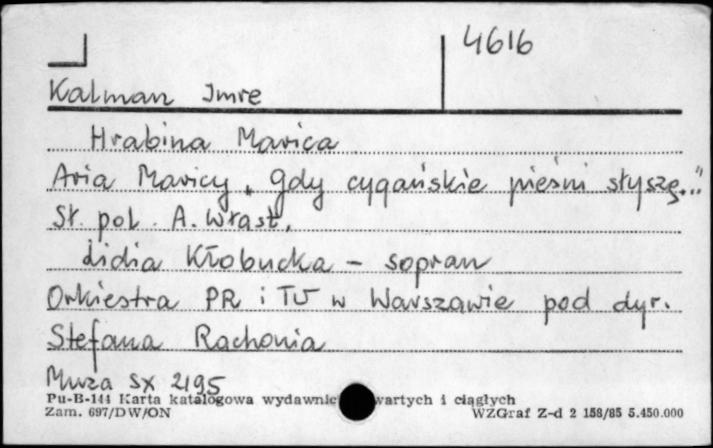 4616
Kalman Imre
Hrabina Marica
Aria Maricy "gdy cygańskie pieśni słyszę..."
Sł. pol. A. Włast,
Lidia Kłobucka - sopran
Orkiestra PR i TV w Warszawie pod dyr.
Stefana Rachonia
Muza SX 2195
Pu-B-144 Karta katalogowa wydawnic wartych i ciągłych
Zam. 697/DW/ON WZGraf Z-d 2 158/85 5.450.000